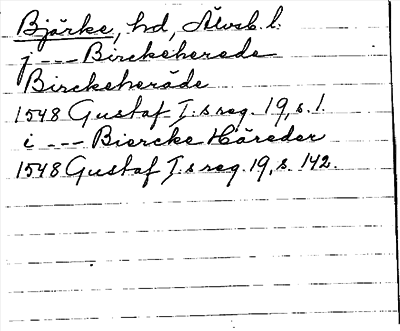 Bjärke, hd, Älvsb. l.
j --- Birckeherede
Birckeheräde
1548 Gustaf I:s reg. 19, s. 1.
i --- Biercke Häreder
1548 Gustaf I:s reg. 19, s. 142.